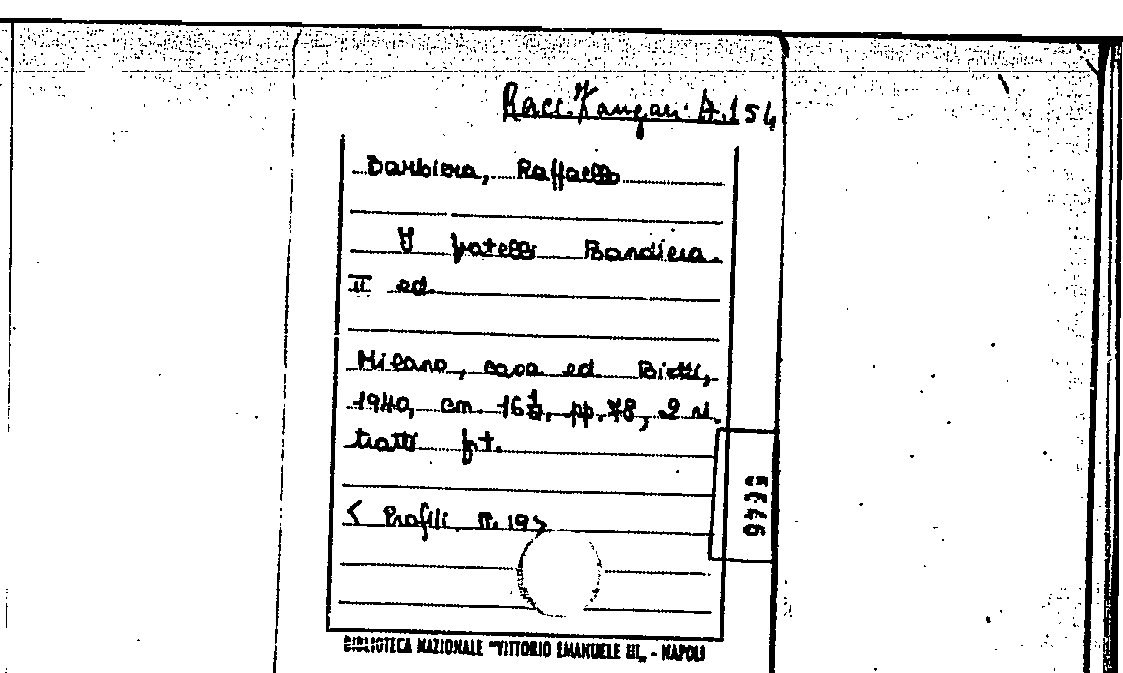 Racc. Zangari A.154
Barbiera, Raffaello
I fratelli Bandiera.
II ed.
Milano, casa ed. Bietti,
1940, cm. 16½, pp. 78, 2 ri
tratti ft.
< Profili n. 19>
BIBLIOTECA NAZIONALE "VITTORIO EMANUELE III„ - NAPOLI